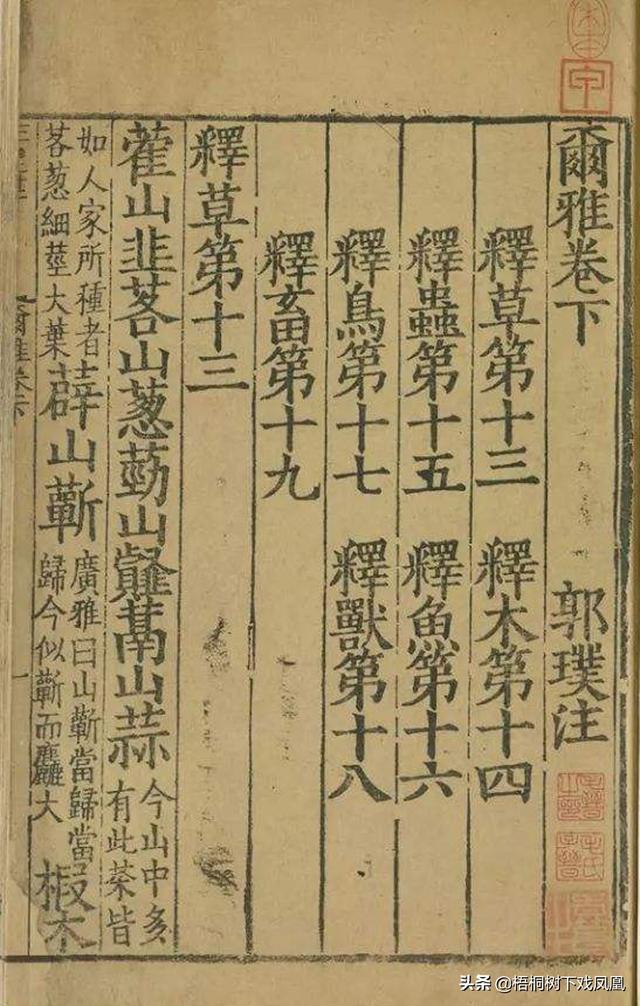 爾雅卷下 郭璞注
釋草第十三 釋木第十四
釋蟲第十五 釋魚第十六
釋鳥第十七 釋獸第十八
釋畜第十九
釋草第十三
藿山韭茖山葱葝山䪥蒚山蒜
今山中多
有此菜皆
如人家所種者
茖葱細莖大葉
薜山蘄
廣雅曰山蘄當歸當
歸今似蘄而麤大
椴木
爾雅卷下
头条 @梧桐树下戏凤凰